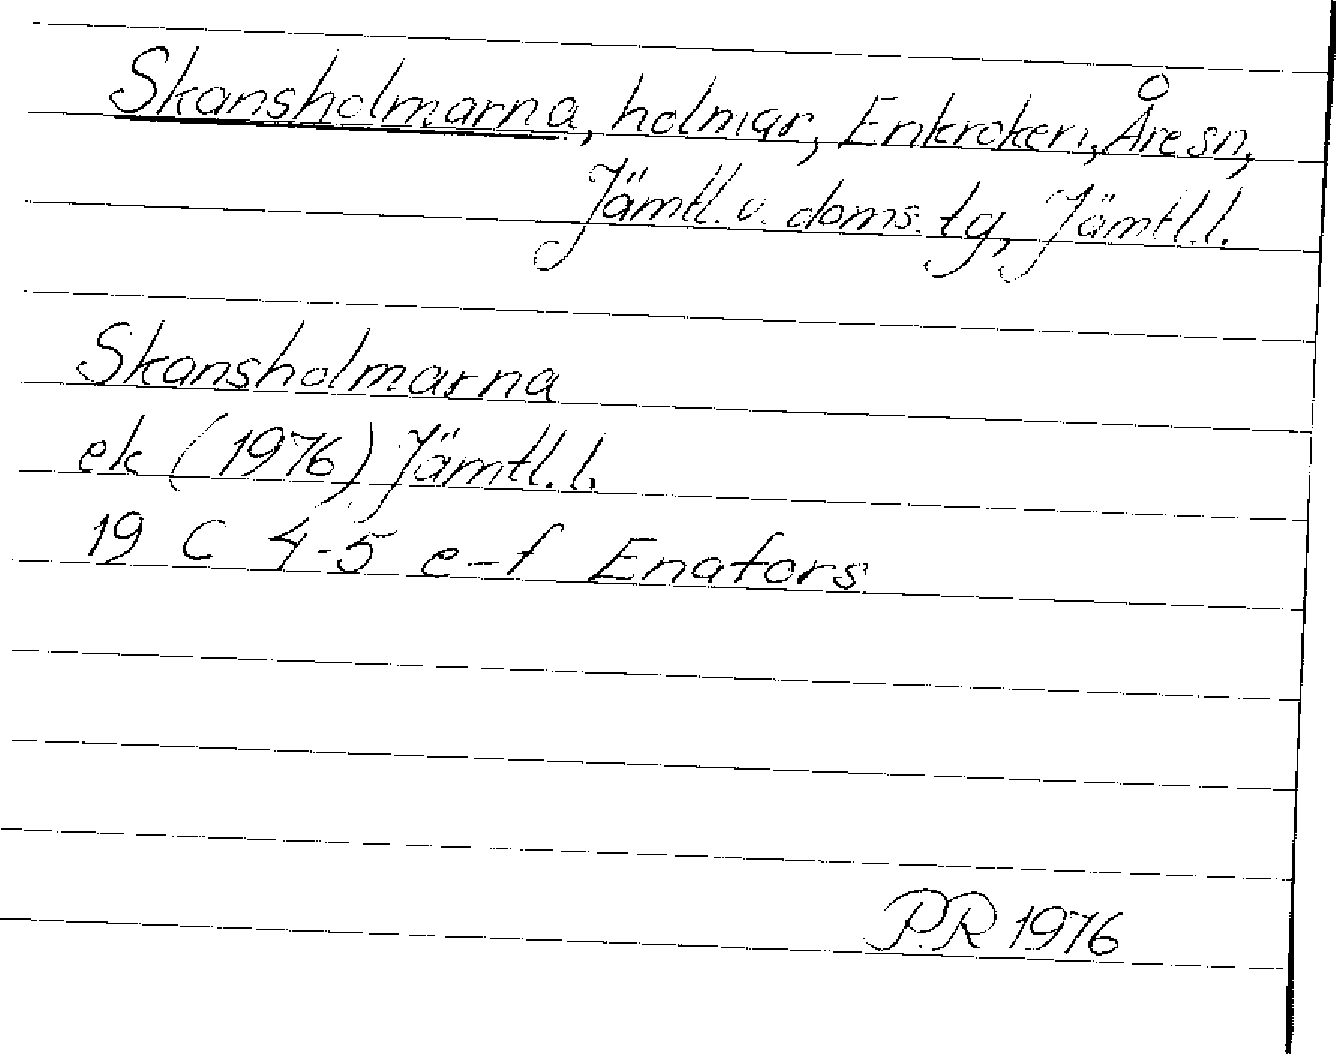 Skansholmarna, holmar, Enkroken, Åre sn,
Jämtl. v. doms. tg, Jämtl. l.
Skansholmarna
ek (1976) Jämtl. l.
19 C 4-5 e-f Enafors
P.R 1976